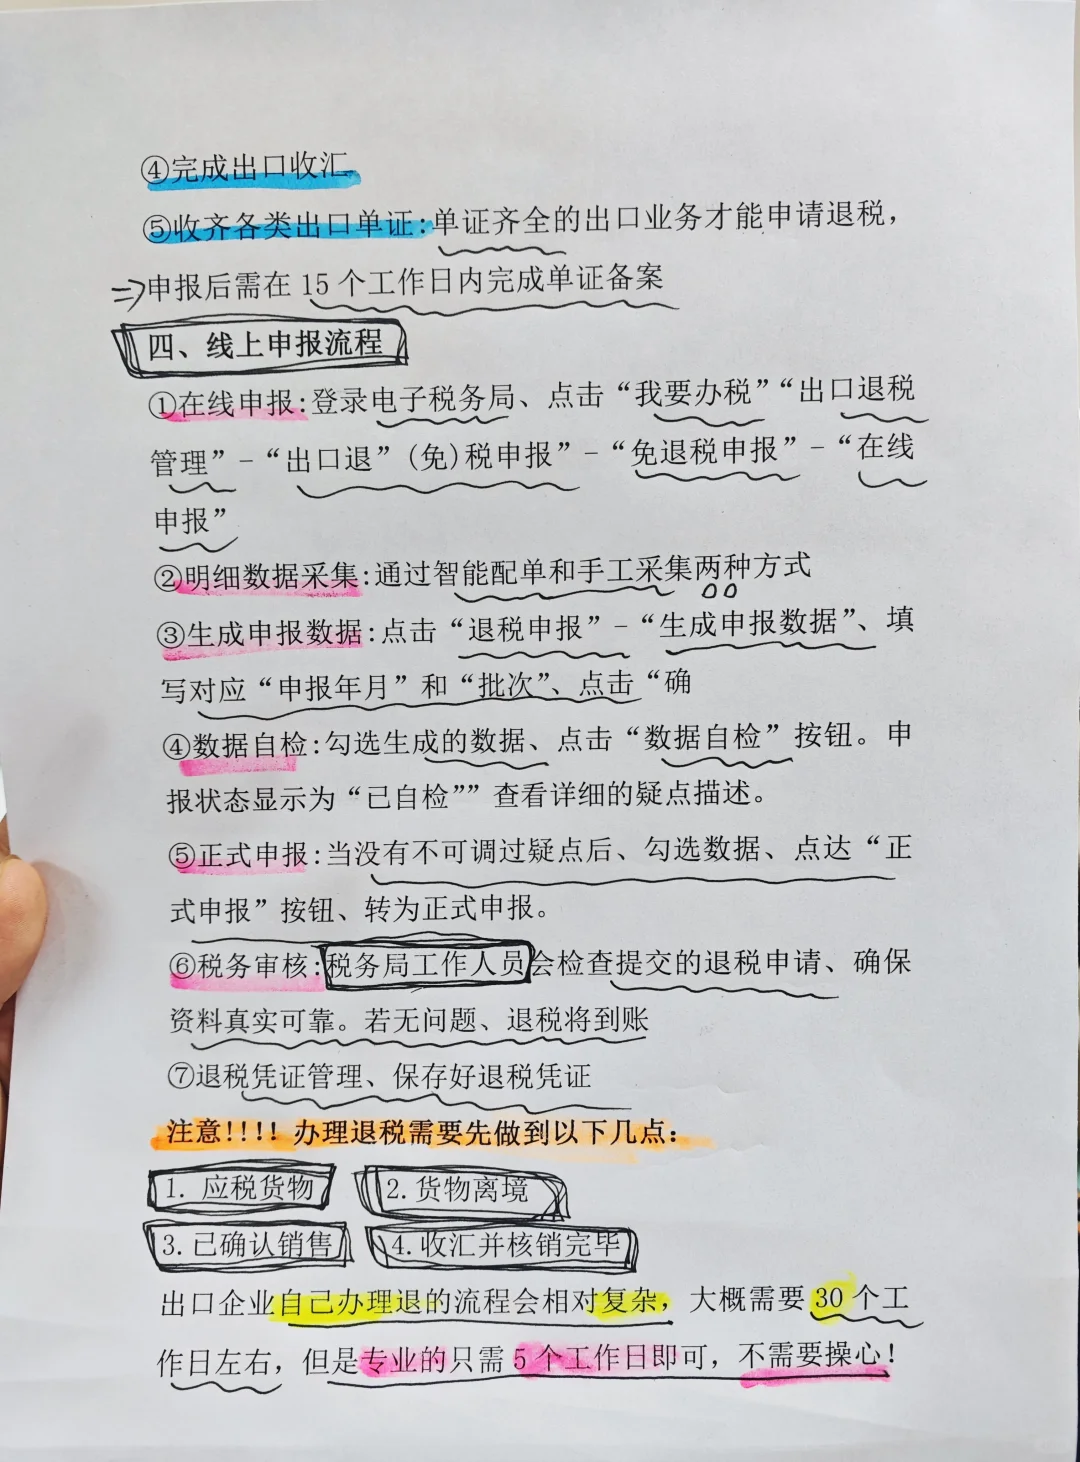 ④完成出口收汇
⑤收齐各类出口单证:单证齐全的出口业务才能申请退税,
=>申报后需在 15 个工作日内完成单证备案
四、线上申报流程
①在线申报:登录电子税务局、点击“我要办税”“出口退税
管理”-“出口退”(免)税申报”-“免退税申报”-“在线
申报”
②明细数据采集:通过智能配单和手工采集两种方式
③生成申报数据:点击“退税申报”-“生成申报数据”、填
写对应“申报年月”和“批次”、点击“确
④数据自检:勾选生成的数据、点击“数据自检”按钮。申
报状态显示为“已自检””查看详细的疑点描述。
⑤正式申报:当没有不可调过疑点后、勾选数据、点达“正
式申报”按钮、转为正式申报。
⑥税务审核:税务局工作人员会检查提交的退税申请、确保
资料真实可靠。若无问题、退税将到账
⑦退税凭证管理、保存好退税凭证
注意!!!! 办理退税需要先做到以下几点:
1. 应税货物 2.货物离境
3.已确认销售 4.收汇并核销完毕
出口企业自己办理退的流程会相对复杂,大概需要 30 个工
作日左右,但是专业的只需 5 个工作日即可,不需要操心!